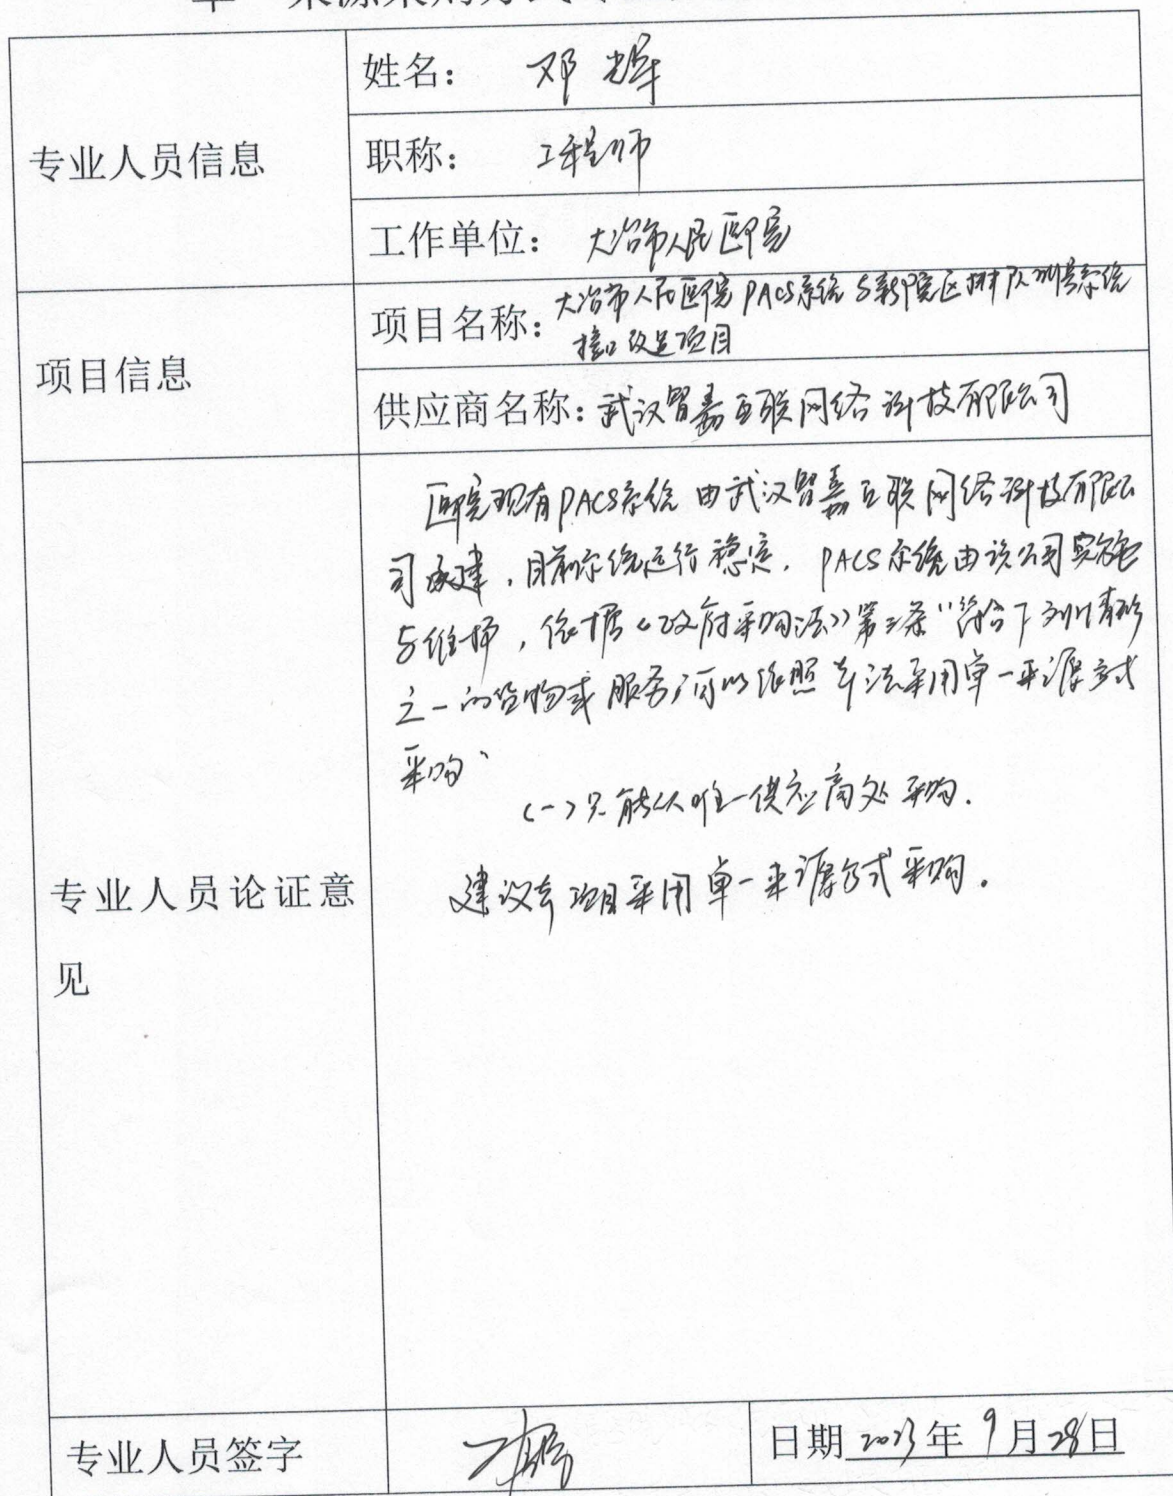 单一来源采购方式专业
专业人员信息
姓名: 邓辉
职称: 工程师
工作单位: 大冶市人民医院
项目信息
项目名称: 大冶市人民医院PACS系统与新院区排队叫号系统
接口改造项目
供应商名称: 武汉智嘉互联网络科技有限公司
专业人员论证意
见
医院现有PACS系统由武汉智嘉互联网络科技有限公
司承建,目前系统运行稳定. PACS系统由该公司实施
与维护,依据《政府采购法》第三条"符合下列情形
之一的货物或服务,可以依照本法采用单一来源方式
采购、
(一)只能从唯一供应商处采购.
建议本项目采用单一来源方式采购.
专业人员签字
日期 2023年9月28日